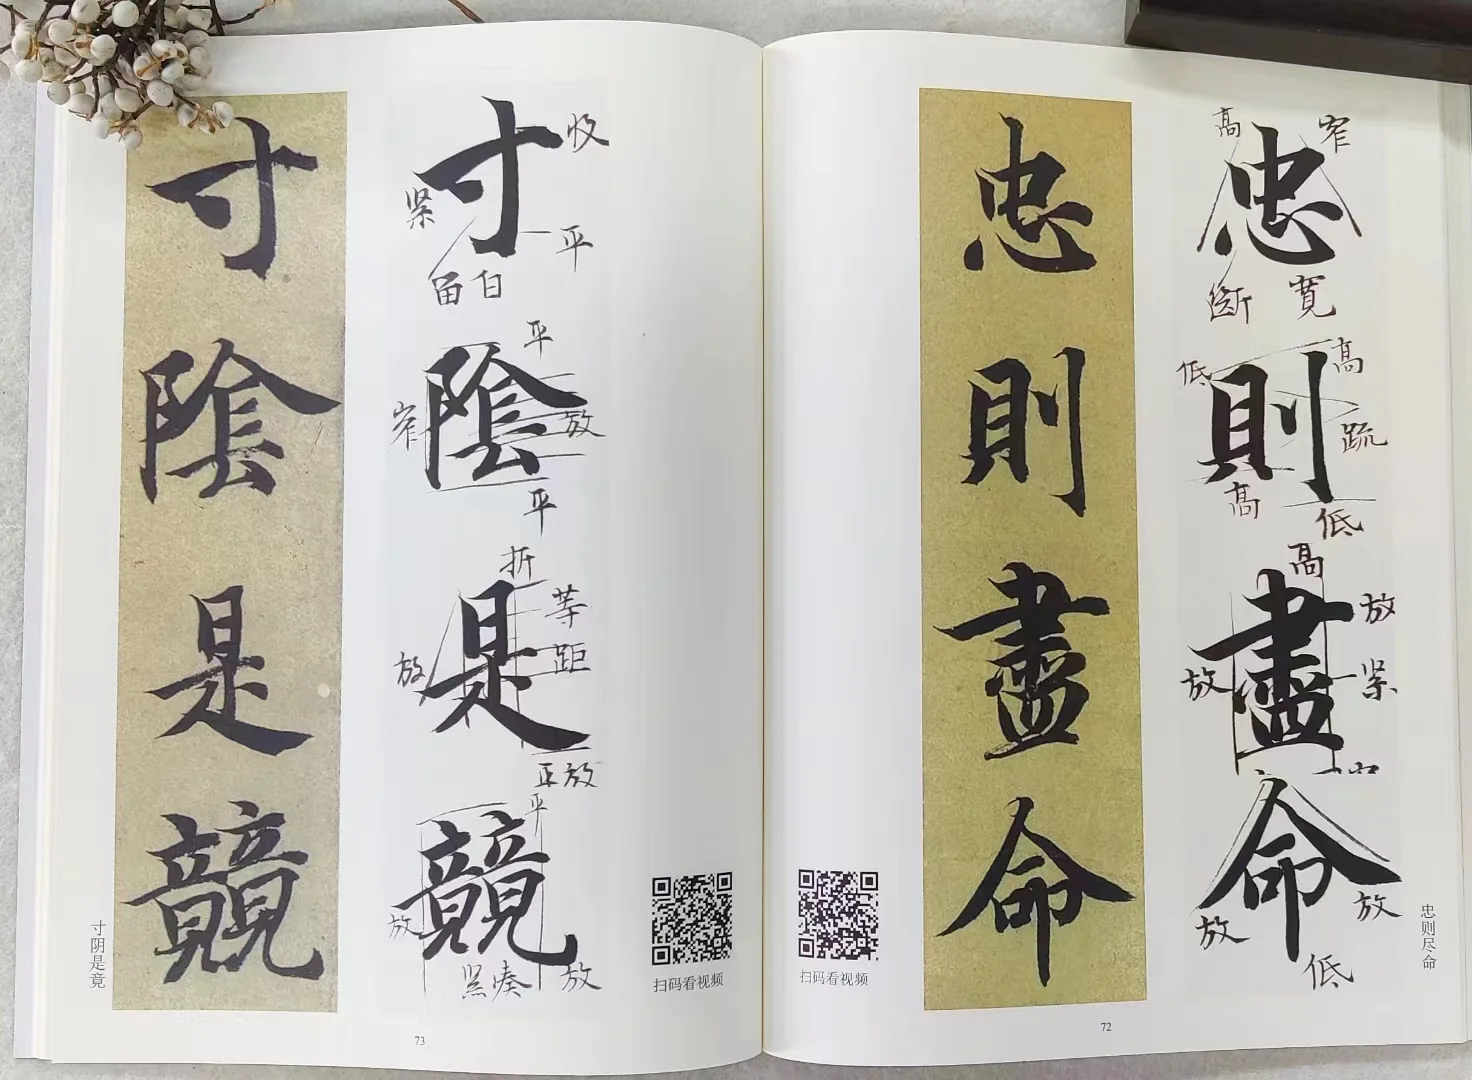 忠則盡命
高
窄
忠
斷
寬
低
高
則
疏
高
低
高
放
盡
放
紧
命
放
放
低
忠则尽命
扫码看视频
72
寸陰是競
收
寸
紧
平
留白
平
陰
窄
放
平
折
等距
是
放
平放
平
競
放
紧凑
放
寸阴是竟
扫码看视频
73